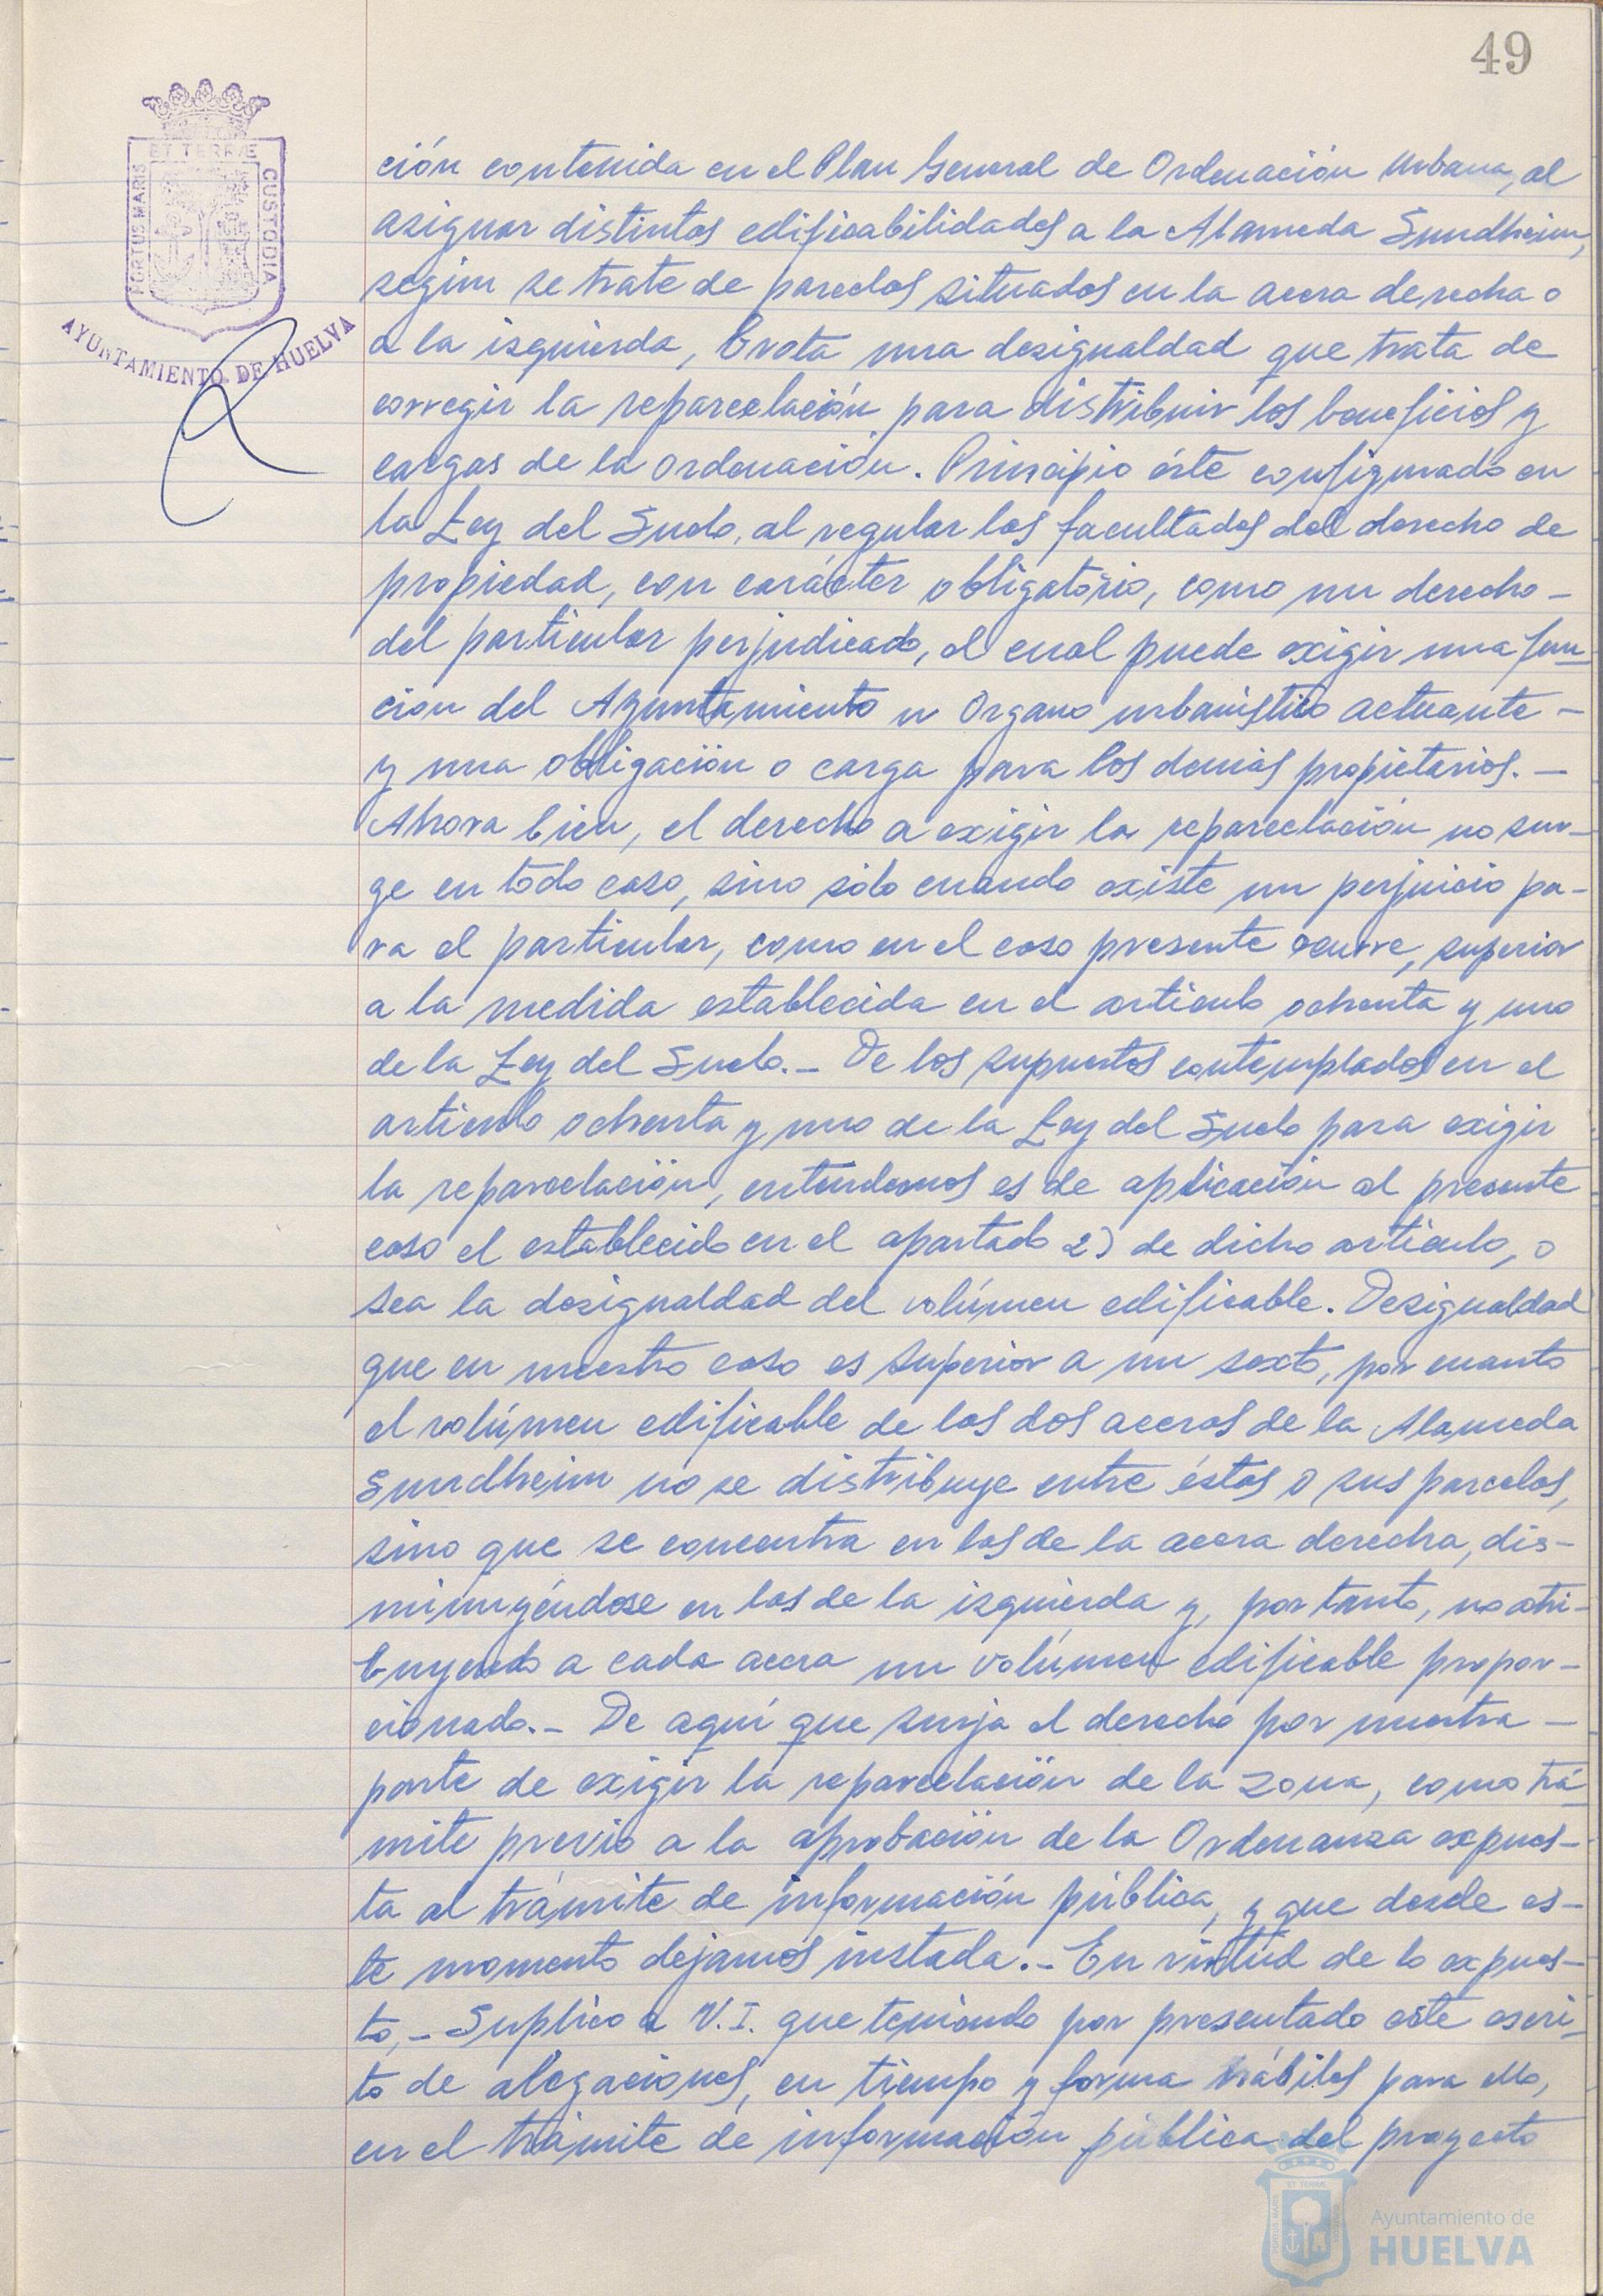 49
ET TERRÆ
PORTUS MARIS
CUSTODIA
AYUNTAMIENTO DE HUELVA
ción contenida en el Plan General de Ordenación Urbana, al
asignar distintas edificabilidades a la Alameda Sundheim,
según se trate de parcelas situadas en la acera derecha o
a la izquierda, brota una desigualdad que trata de
corregir la reparcelación para distribuir los beneficios y
cargas de la ordenación. Principio éste configurado en
la Ley del Suelo, al regular las facultades del derecho de
propiedad, con carácter obligatorio, como un derecho -
del particular perjudicado, el cual puede exigir una fun-
ción del Ayuntamiento u Organo urbanístico actuante -
y una obligación o carga para los demás propietarios. -
Ahora bien, el derecho a exigir la reparcelación no sur-
ge en todo caso, sino sólo cuando existe un perjuicio pa-
ra el particular, como en el caso presente ocurre, superior
a la medida establecida en el artículo ochenta y uno
de la Ley del Suelo.- De los supuestos contemplados en el
artículo ochenta y uno de la Ley del Suelo para exigir
la reparcelación, entendemos es de aplicación al presente
caso el establecido en el apartado 2) de dicho artículo, o
sea la desigualdad del volúmen edificable. Desigualdad
que en nuestro caso es superior a un sexto, por cuanto
el volúmen edificable de las dos aceras de la Alameda
Sundheim no se distribuye entre éstas o sus parcelas,
sino que se concentra en las de la acera derecha, dis-
minuyéndose en las de la izquierda y, por tanto, no atri-
buyendo a cada acera un volúmen edificable propor-
cionado.- De aquí que surja el derecho por nuestra -
parte de exigir la reparcelación de la zona, como trá-
mite previo a la aprobación de la Ordenanza expues-
ta al trámite de información pública, y que desde es-
te momento dejamos instada.- En virtud de lo expues-
to,- Suplico a V.I. que teniendo por presentado este escri-
to de alegaciones, en tiempo y forma hábiles para ello,
en el trámite de información pública del proyecto
Ayuntamiento de
HUELVA